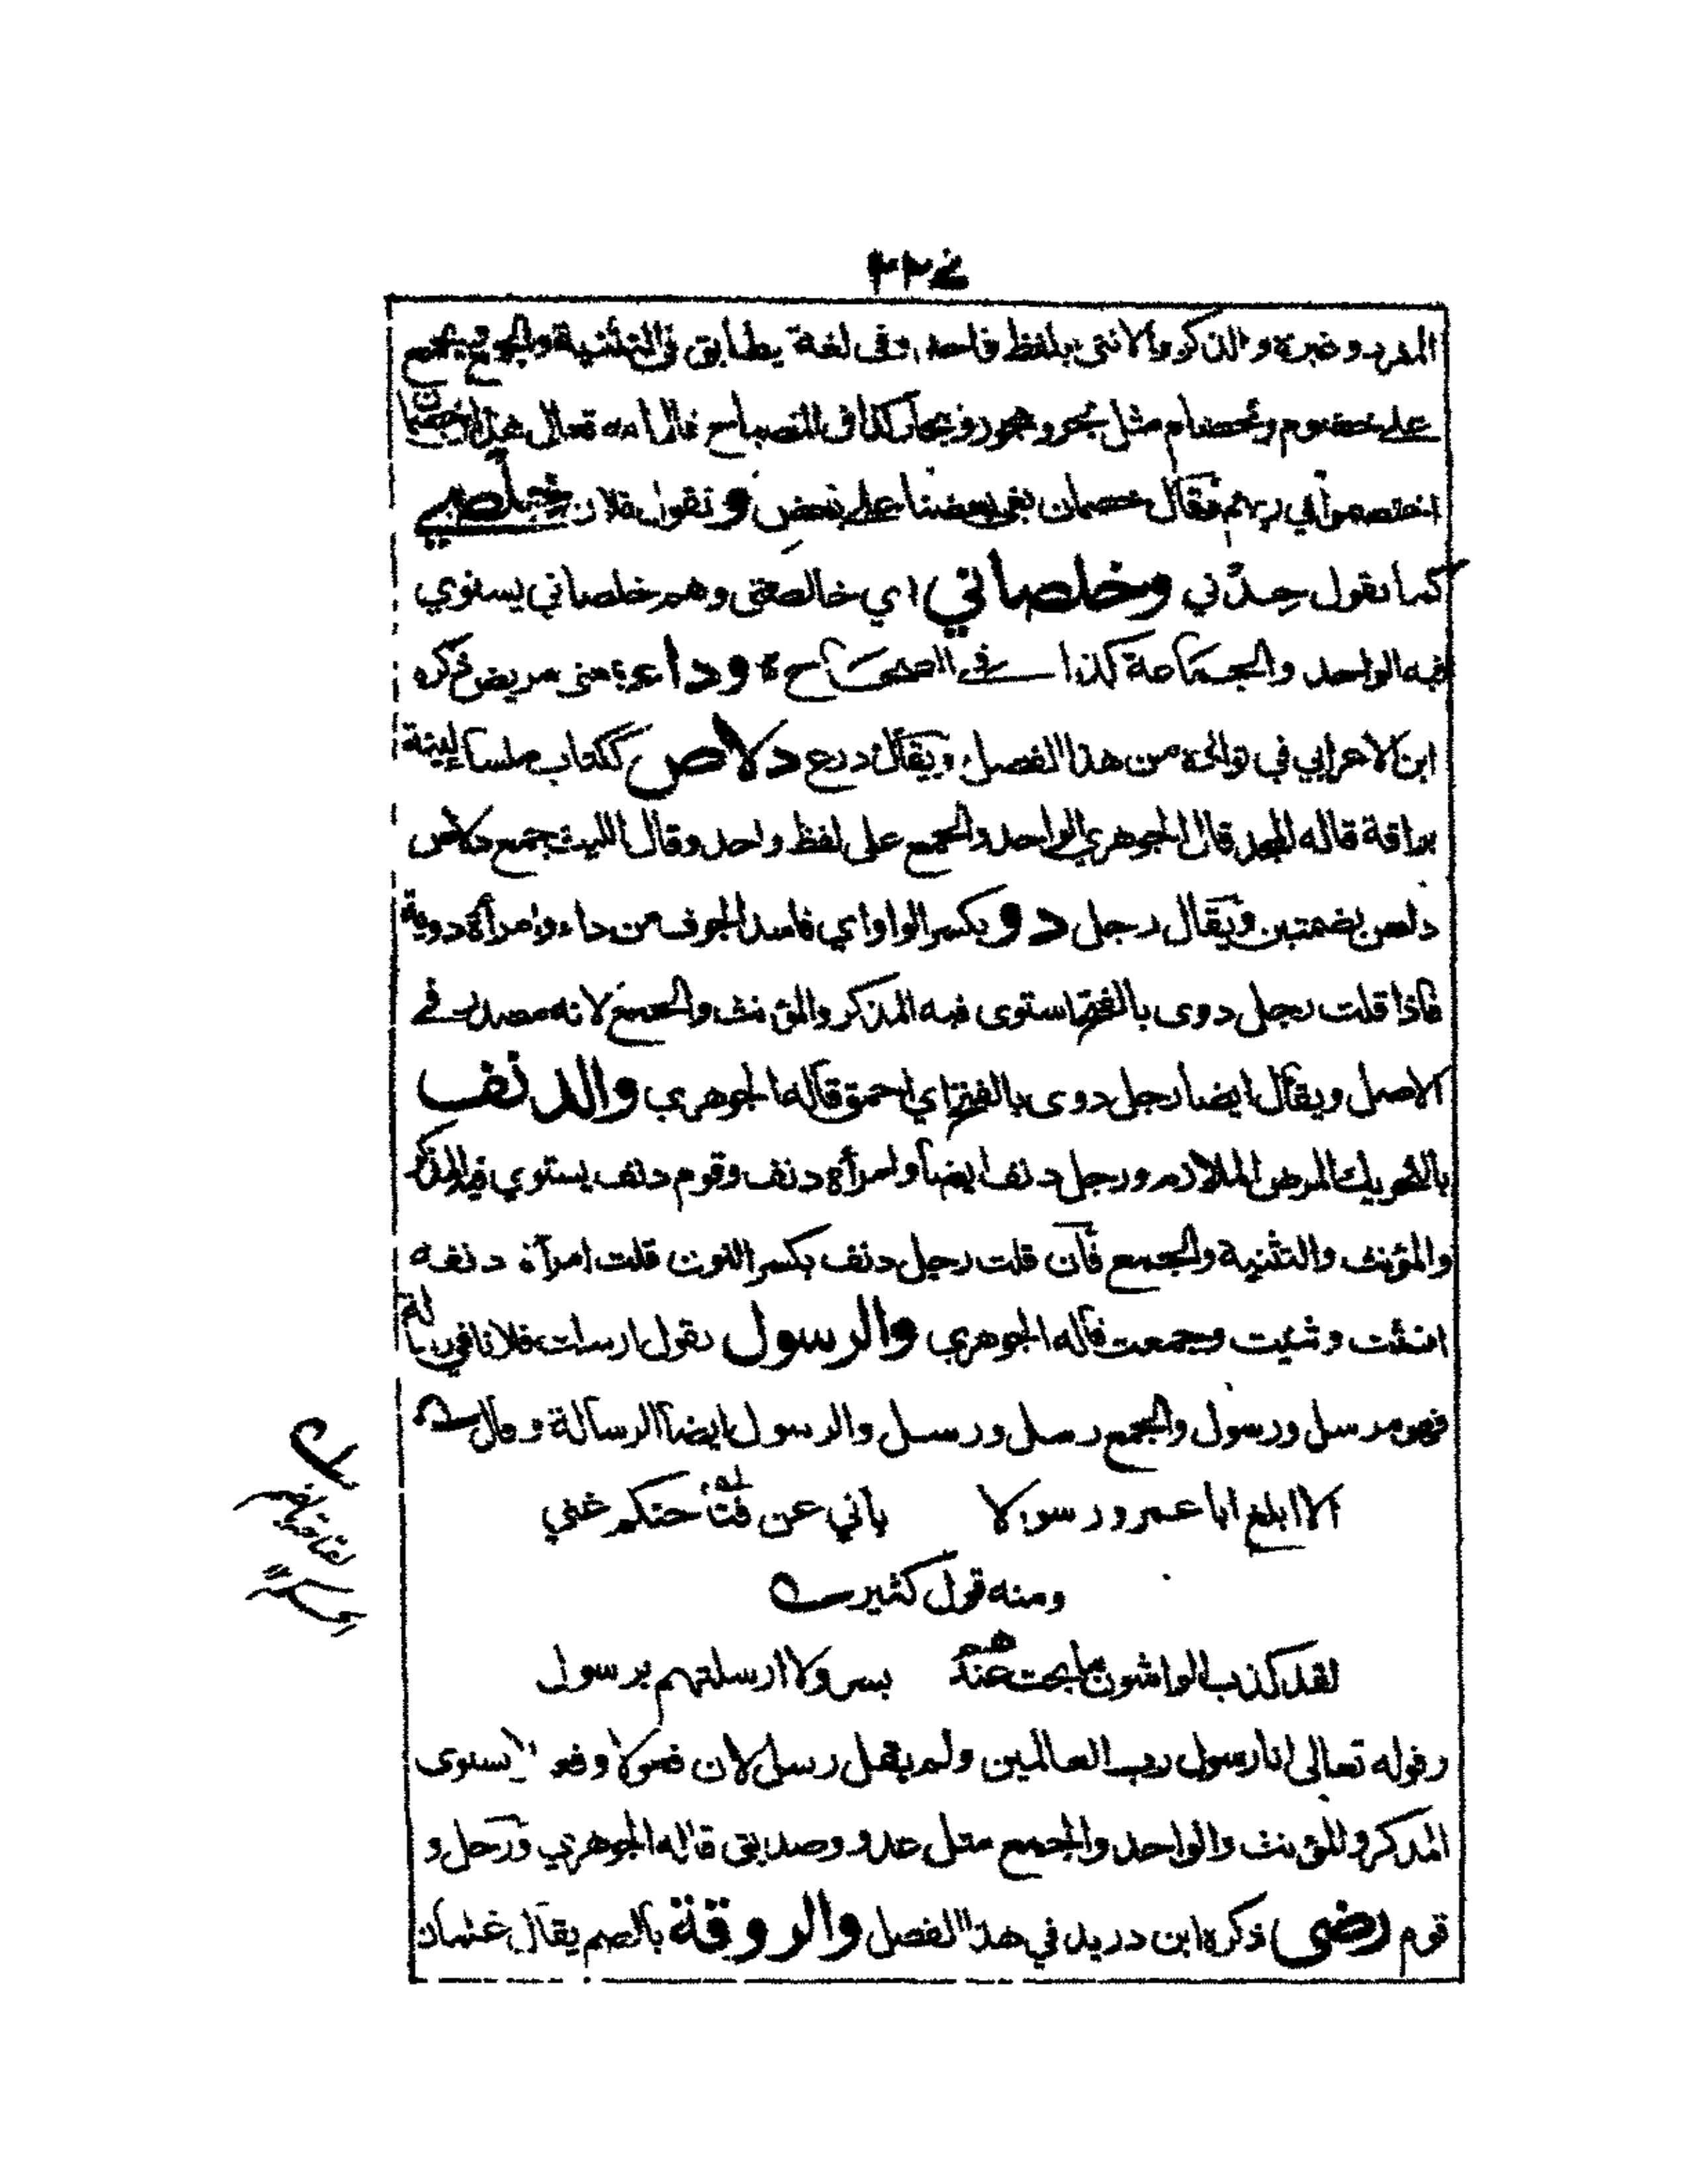 ٢٢٤
المفرد وغيره والذكر والانثى بلفظ واحد وفى لغة يطابق فى التثنية والجمع ويجمع
على خصوم وخصام مثل بحر وبحور وبحار كذا فى المصباح قال الله تعالى هذان خصمان
اختصموا في ربهم وقال خصمان بغى بعضنا على بعض وتقول فلان خلصي
كما تقول خدني وخلصاني اي خالصتى وهم خلصاني يستوي
فيه الواحد والجماعة كذا في الصحاح وداء بمعنى مريض ذكره
ابن الاعرابي في نوادره من هذا الفصل ويقال درع دلاص ككتاب ملساء لينة
براقة قاله المجد قال الجوهري الواحد والجمع على لفظ واحد وقال الليث جمع دلاص
دلص بضمتين ويقال رجل دو بكسر الواو اي فاسد الجوف من داء وامرأة دوية
فاذا قلت رجل دوى بالفتح استوى فيه المذكر والمؤنث والجمع لانه مصدر في
الاصل ويقال ايضا رجل دوى بالفتح اي احمق قاله الجوهري والدنف
بالتحريك المرض الملازم ورجل دنف ايضا وامرأة دنف وقوم دنف يستوي فيه المذكر
والمؤنث والتثنية والجمع فان قلت رجل دنف بكسر النون قلت امرأة دنفه
انثت وثنيت وجمعت قاله الجوهري والرسول تقول ارسلت فلانا في رسالة
فهو مرسل ورسول والجمع رسل ورسل والرسول ايضا الرسالة وقال
الا ابلغ ابا عمرو رسولا باني عن فتاحتكم غني
ومنه قول كثير
لقد كذب الواشون ما بحت عندهم بسر ولا ارسلتهم برسول
وقوله تعالى انا رسول رب العالمين ولم يقل رسل لان فعولا وفعيلا يستوى
المذكر والمؤنث والواحد والجمع مثل عدو وصديق قاله الجوهري ورجل و
قوم رضى ذكره ابن دريد في هذا الفصل والروقة بالضم يقال غلمان